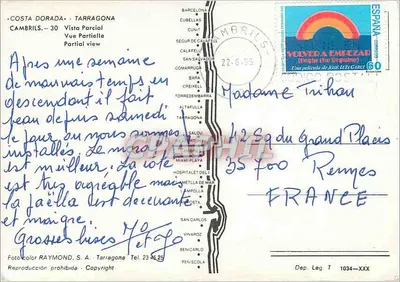 «COSTA DORADA» - TARRAGONA
CAMBRILS. - 30 Vista Parcial
Vue Partielle
Partial view
Apres une semaine
de mauvais temps en
descendant il fait
beau depuis samedi
le jour ou nous sommes
installés. Le moral
est meilleur. La côte
est très agréable mais
la paëlla est decevante
et maigre.
Grosses bises
Foto color RAYMOND, S. A. - Tarragona - Tel. 23
Reproducción prohibida - Copyright
BARCELONA
CUBELLAS
CUNIT
CALAFELL
SAN SALVADOR
TORREDEMBARRA
ALTAFULLA
TARRAGONA
SALOU
MIAMI PLAYA
HOSPITALET DEL
SAN CARLOS
VINAROZ
BENICARLO
PEÑISCOLA
CAMBRILS
22-8-
ESPAÑA
VOLVER A EMPEZAR
(Begin the Beguine)
Una película de José Luis Garci
60
Madame Trihan
42 Sq du Grand Placis
35700 Rennes
FRANCE
Dep. Leg. T 1034-XXX